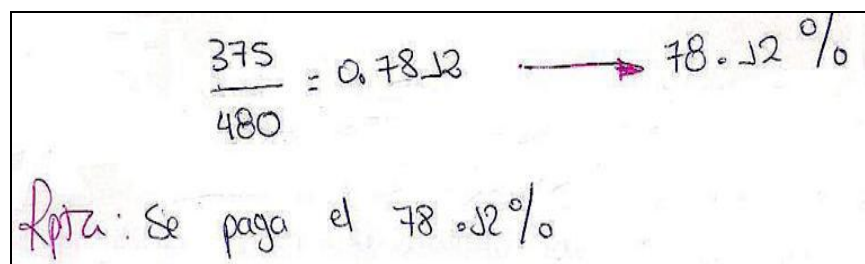 375/480 = 0.7812 → 78.12 %
Rpta: Se paga el 78.12%